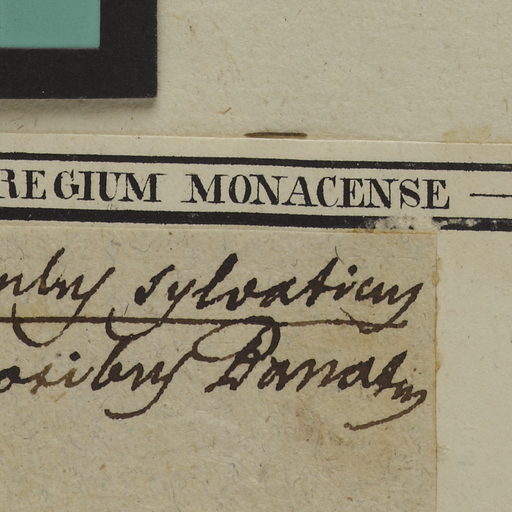 REGIUM MONACENSE —
sylvaticus
oribus Banatus